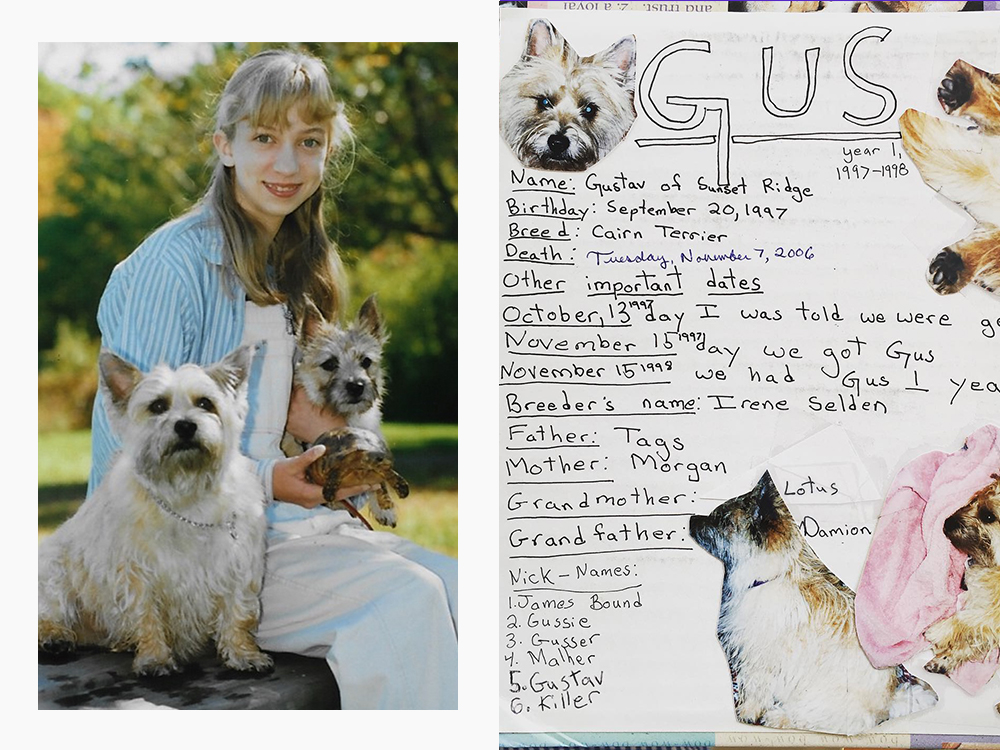 and trust. 2. a loyal
GUS
year 1,
1997-1998
Name: Gustav of Sunset Ridge
Birthday: September 20, 1997
Breed: Cairn Terrier
Death: Tuesday, November 7, 2006
Other important dates
October, 13 1997 day I was told we were ge
November 15 1997 day we got Gus
November 15 1998 we had Gus 1 yea
Breeder's name: Irene Selden
Father: Tags
Mother: Morgan
Grandmother: Lotus
Grandfather: Damion
Nick-Names:
1. James Bound
2. Gussie
3. Gusser
4. Malher
5. Gustav
6. Killer